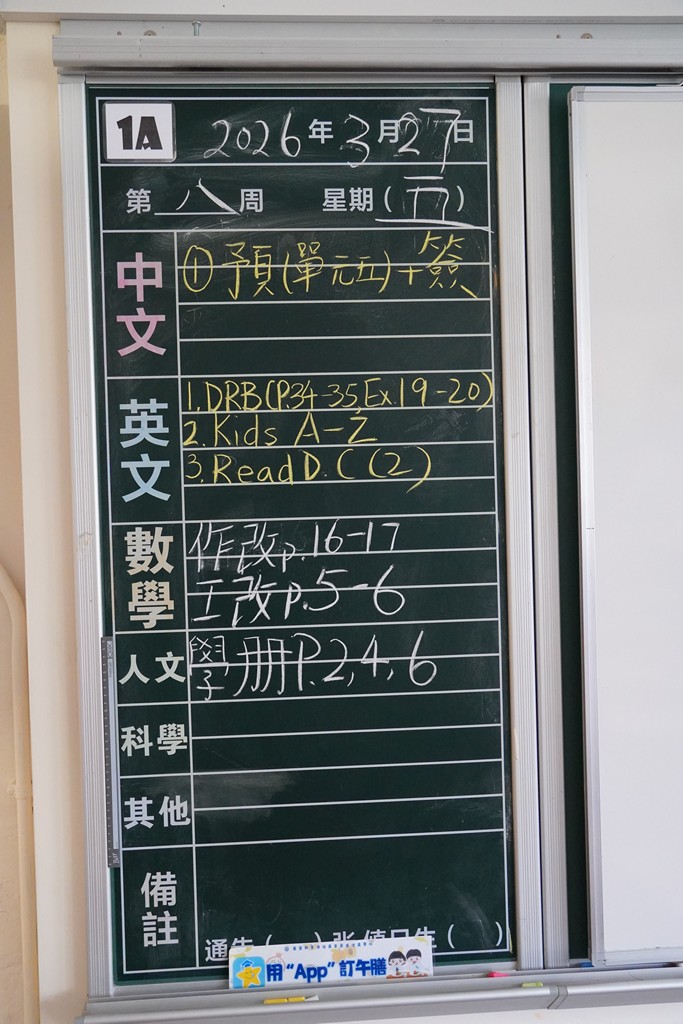 1A 2026年3月27日
第八周 星期(五)
中文
①預(單元五)+簽
英文
1.DRB(P.34-35,Ex.19-20)
2.Kids A-Z
3.Read D.C(2)
數學
作改p.16-17
工改p.5-6
人文
學册P.2,4,6
科學
其他
備註
通告( )張 值日生( )
用“App”訂午膳